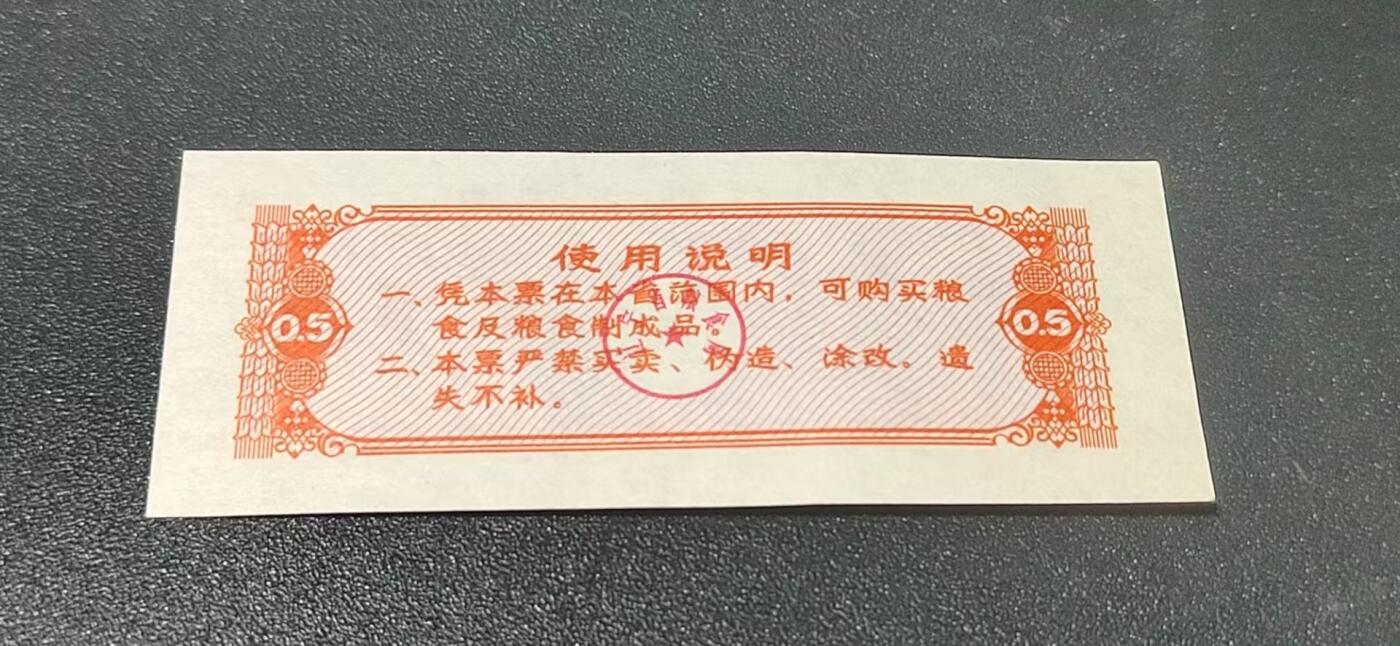 使用说明
一、凭本票在本省范围内，可购买粮
食及粮食制成品。
二、本票严禁买卖、伪造、涂改。遗
失不补。
0.5
0.5